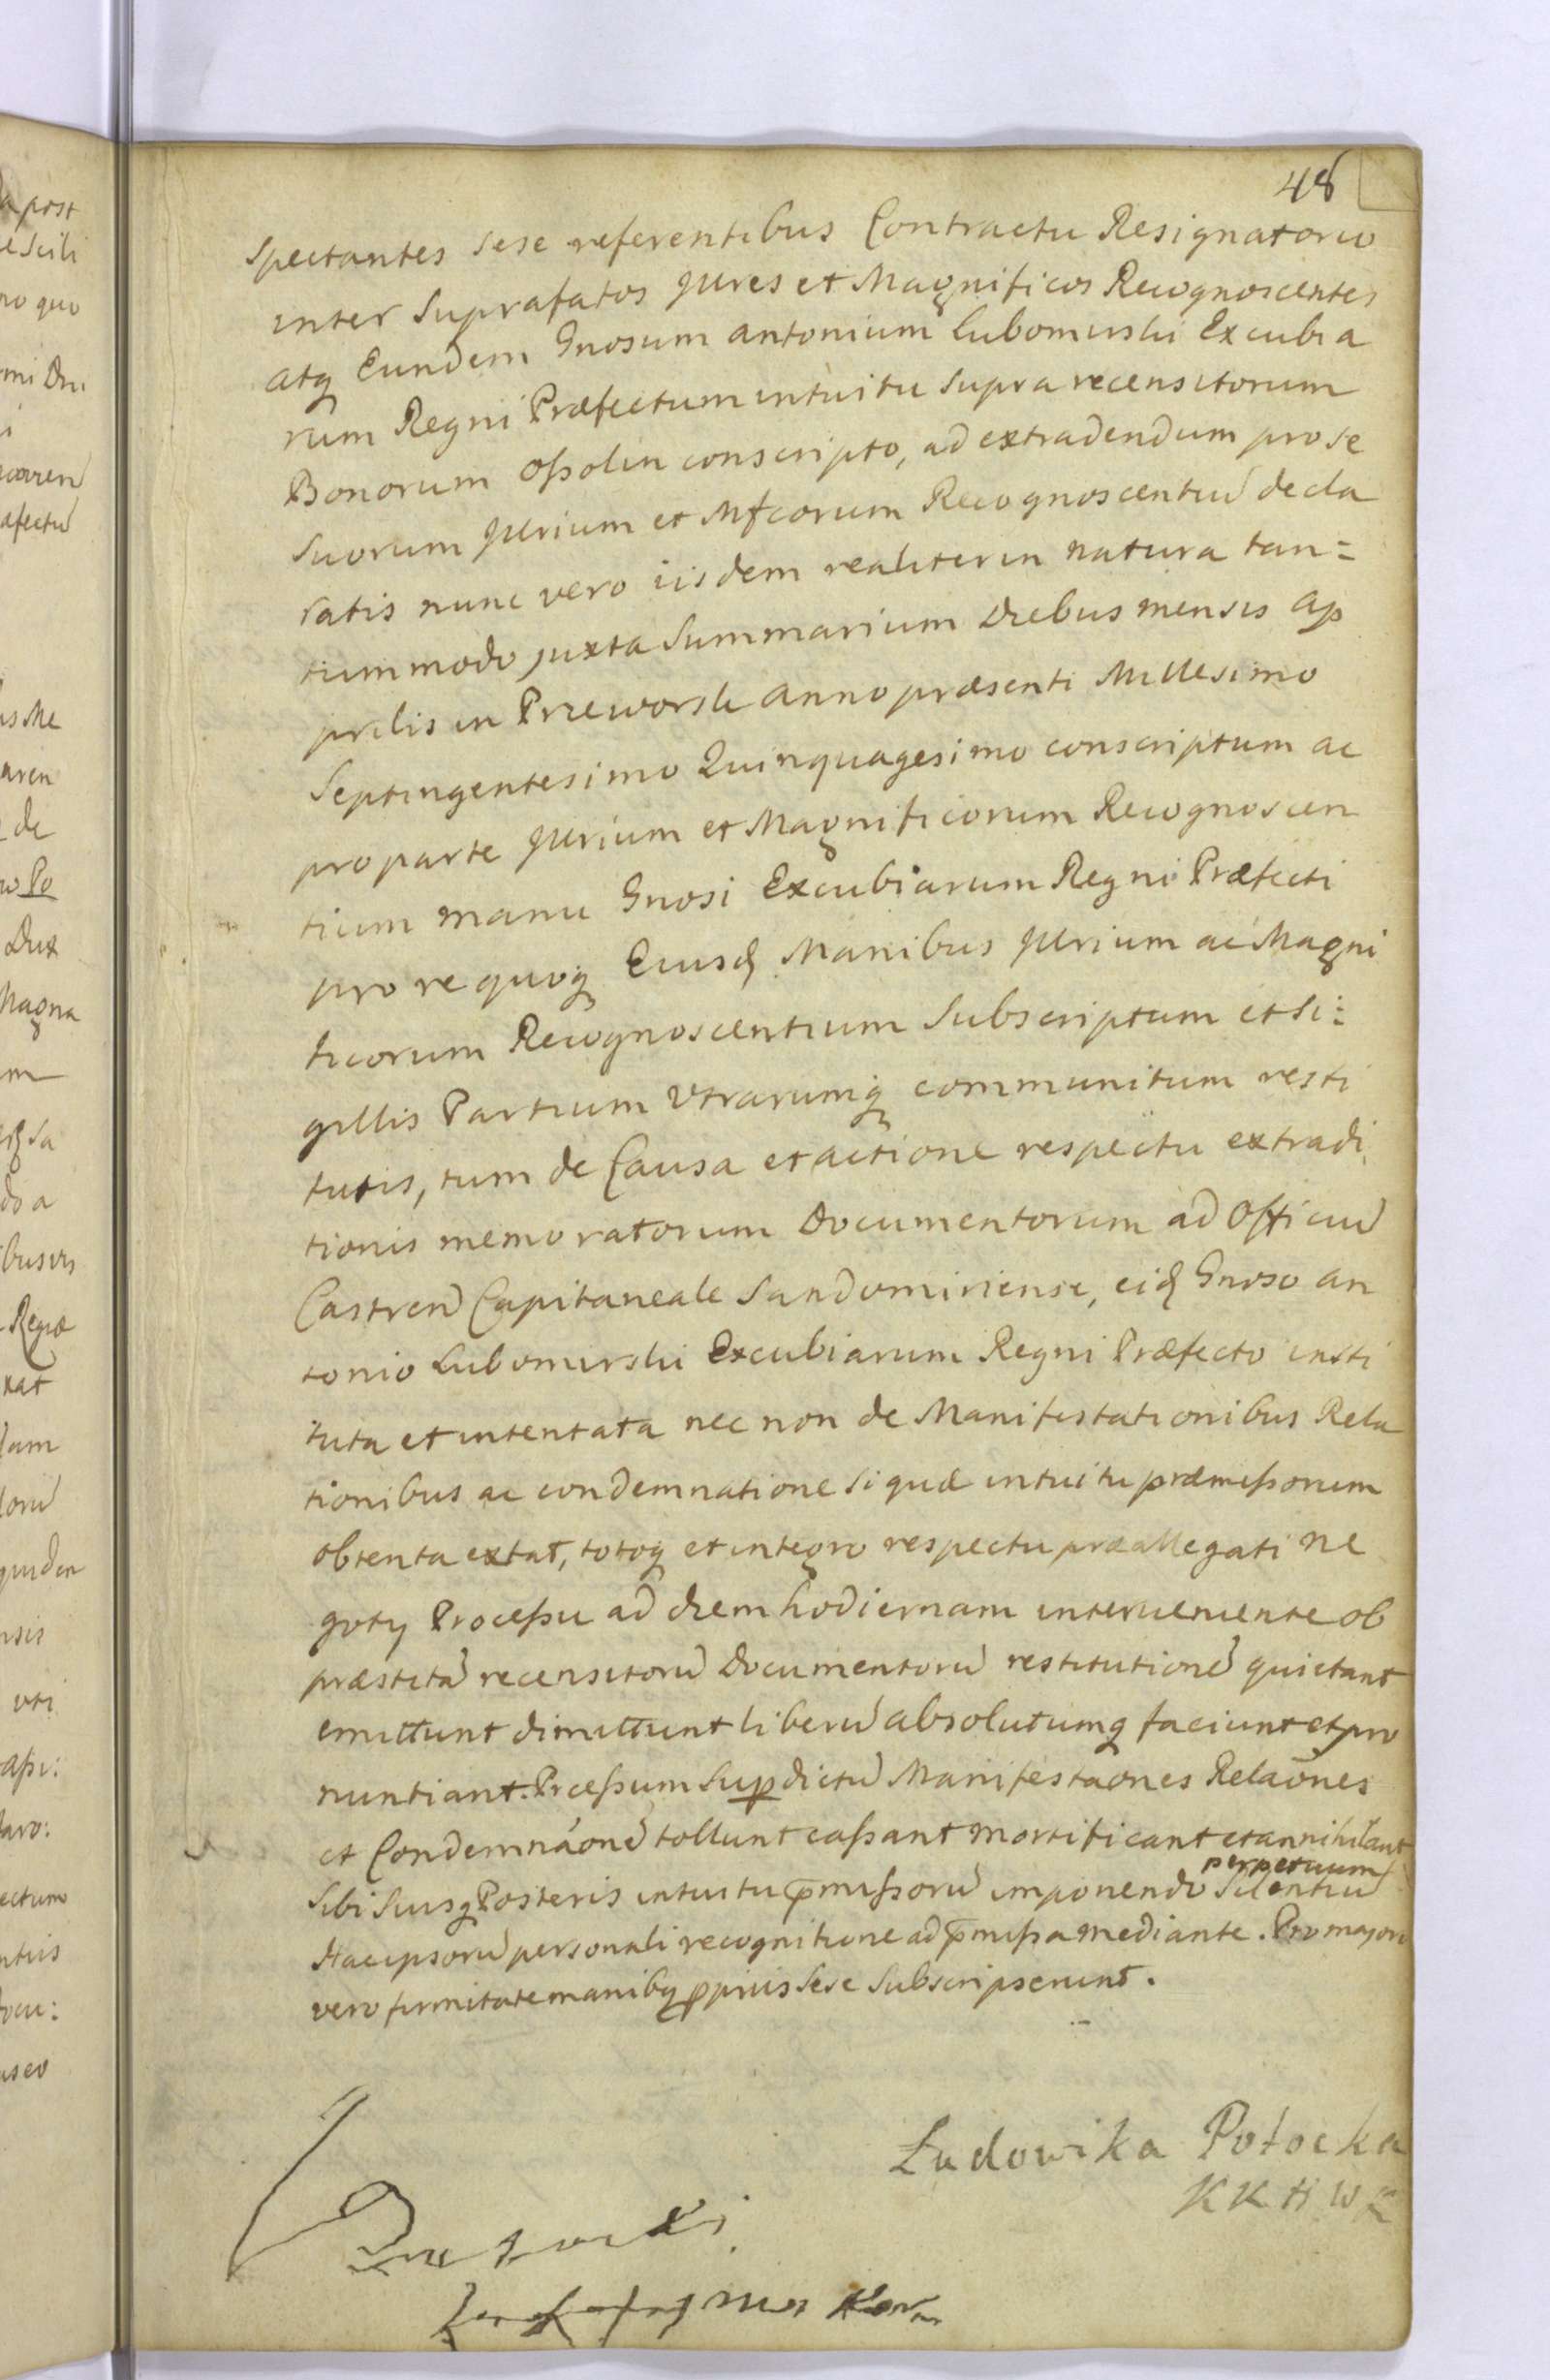 48
Spectantes sese referentibus Contractu Resignatorio
inter Suprafatos Jllres et Magnificos Recognoscentes
atq Eundem Gnosum Antonium Lubomirski Excubia
rum Regni Præfectum intuitu supra recensitorum
Bonorum Ossolin conscripto, ad extradendum pro se
Suorum Jllrium et Mfcorum Recognoscentiu decla
ratis nunc vero iisdem realiter in natura tan=
tummodo juxta Summarium Diebus mensis Ap
prilis in Przeworsk Anno præsenti Millesimo
Septingentesimo Quinquagesimo conscriptum ac
pro parte Jllrium et Magnificorum Recognoscen
tium manu Gnosi Excubiarum Regni Præfecti
pro re quoq Eiusd Manibus Jllrium ac Magni
ficorum Recognoscentium Subscriptum et Si=
gillis Partium Utrarumq communitum resti
tutis, tum de Causa et actione respectu extradi
tionis memoratorum Documentorum ad Officiu
Castren Capitaneale Sandomiriense, eid Gnoso An
tonio Lubomirski Excubiarum Regni Præfecto insti
tuta et intentata nec non de Manifestationibus Rela
tionibus ac condemnatione si quæ intuitu præmissorum
obtenta extat, totoq et integro respectu præallegati ne
goty Processu ad diem hodiernam interveniente ob
præstita recensitoru Documentoru restitutione quietant
emittunt dimittunt liberu absolutumq faciunt et pro
nuntiant. Processum Supdictu Manifestaones Relaones
et Condemnaone tollunt cassant mortificant et annihilant
perpetuum
Sibi Suisq Posteris intuitu pmissoru imponendo Silentiu
Hac ipsoru personali recognitione ad pmissa mediante. Pro majori
vero firmitate manibq ppriis Sese Subscripserunt.
Ludowika Potocka
K K H W K